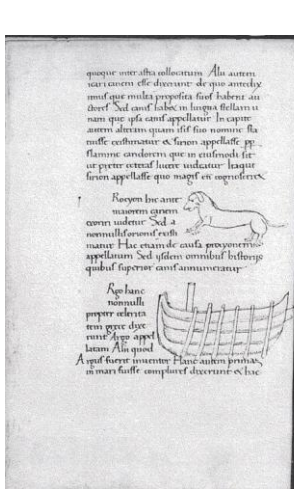 quoque inter astra collocatum Alii autem
icari canem esse dixerunt de quo antedix
imus que multa proposita suos habent au
ctores Sed canis habet in lingua stellam u
nam que ipsa canis appellatur In capite
autem alteram quam isis suo nomine sta
tuisse existimatur & sirion appellasse pp
flammę candorem que in eiusmodi sit
ut preter ceteras lucere uideatur Itaque
sirion appellasse quo magis eū cognoscere&
Rocyon hic ante
maiorem canem
exoriri uidetur Sed a
nonnullis orionis existi
matur Hac etiam de causa procyonem
appellatum Sed isdem omnibus historiis
quibus superior canis annumeratur
Rgo hanc
nonnulli
propter celerita
tem grece dixe
runt Argo appel
latam Alii quod
Argus fuerit inuentor Hanc autem primā
in mari fuisse complures dixerunt & hac